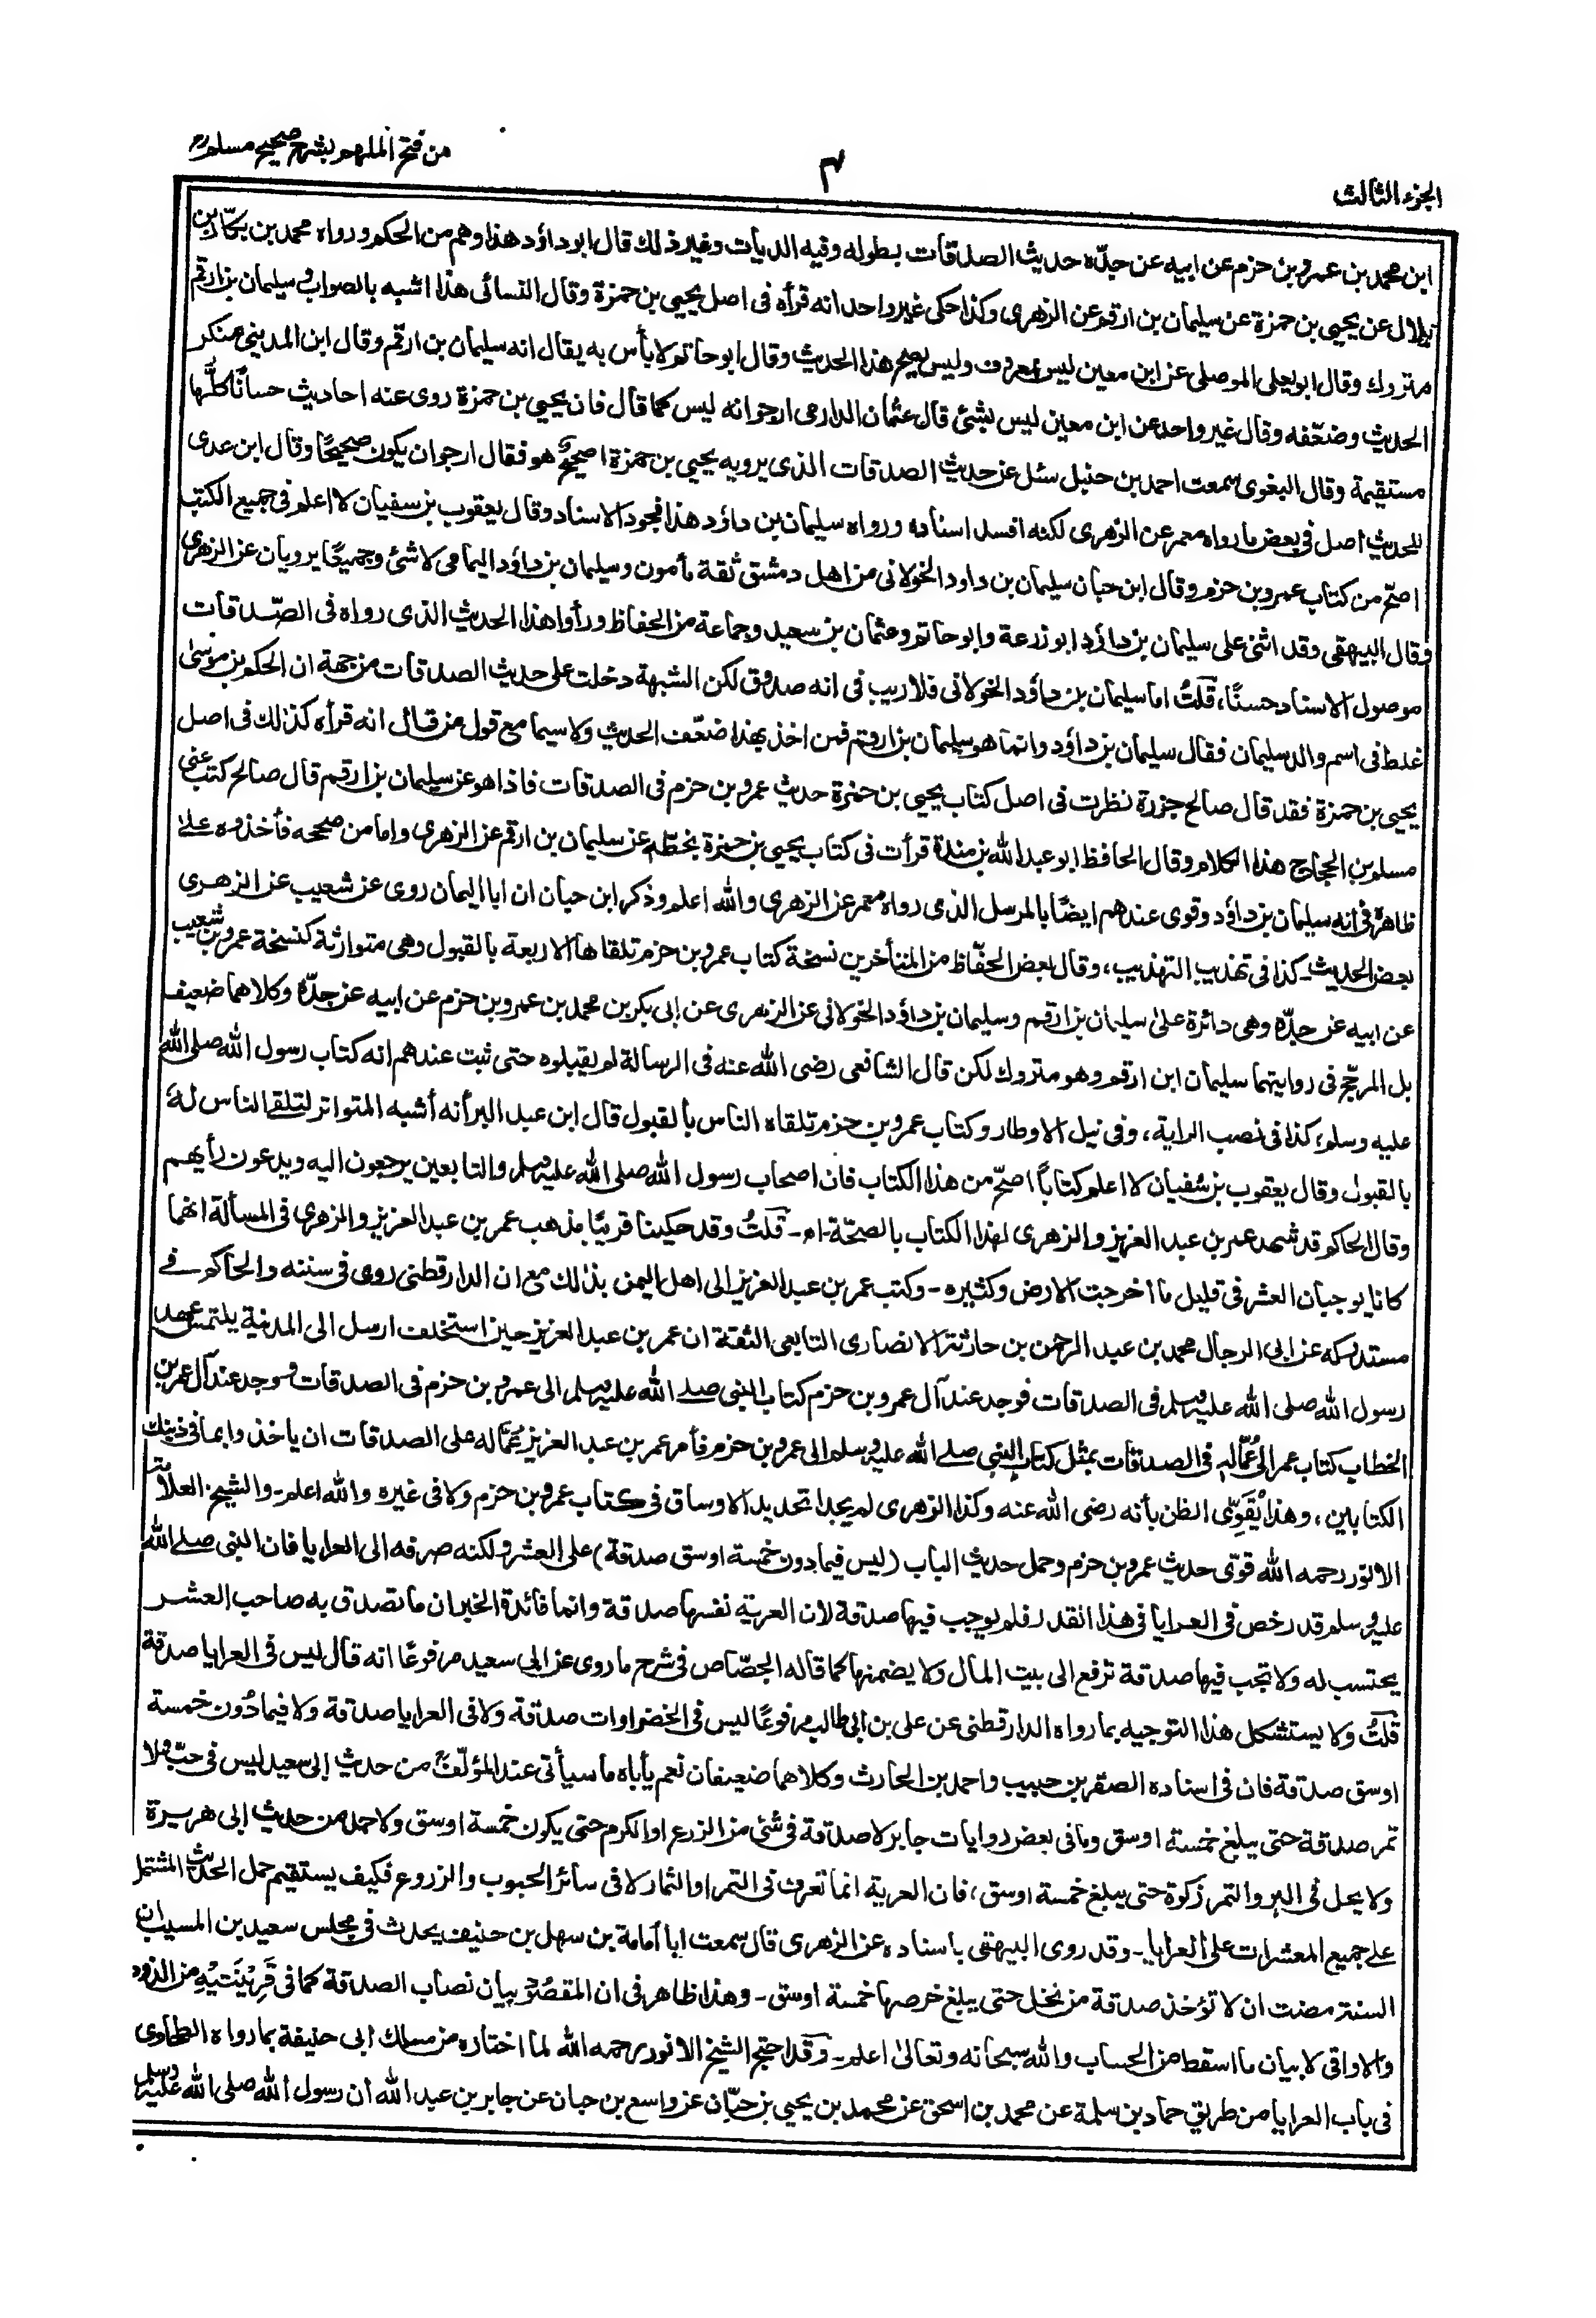 الجزء الثالث
٣
من فتح الملهم بشرح صحيح مسلم
ابن محمد بن عمرو بن حزم عن ابيه عن جدّه حديث الصدقات بطوله وفيه الديات وغير ذلك قال ابو داؤد هذا وهم من الحكم ورواه محمد بن بكّار بن
بلال عن يحيى بن حمزة عن سليمان بن ارقم عن الزهرى وكذا حكى غير واحد انه قرأه فى اصل يحيى بن حمزة وقال النسائى هذا اشبه بالصواب وسليمان بن ارقم
متروك وقال ابو يعلى الموصلى عن ابن معين ليس بمعروف وليس يصح هذا الحديث وقال ابو حاتم لا بأس به يقال انه سليمان بن ارقم وقال ابن المدينى منكر
الحديث وضعّفه وقال غير واحد عن ابن معين ليس بشئ قال عثمان الدارمى ارجو انه ليس كما قال فان يحيى بن حمزة روى عنه احاديث حسانًا كلّها
مستقيمة وقال البغوى سمعت احمد بن حنبل سئل عن حديث الصدقات الذى يرويه يحيى بن حمزة اصحيح هو فقال ارجو ان يكون صحيحًا وقال ابن عدى
للحديث اصل فى بعض ما رواه معمر عن الزهرى لكنه افسد اسناده ورواه سليمان بن داؤد هذا فجود الاسناد وقال يعقوب بن سفيان لا اعلم فى جميع الكتب
اصحّ من كتاب عمرو بن حزم وقال ابن حبان سليمان بن داود الخولانى من اهل دمشق ثقة مأمون وسليمان بن داؤد اليمامى لا شئ وجميعًا يرويان عن الزهرى
وقال البيهقى وقد اثنى على سليمان بن داؤد ابو زرعة وابو حاتم وعثمان بن سعيد وجماعة من الحفاظ ورأوا هذا الحديث الذى رواه فى الصّدقات
موصول الاسناد حسنًا، قلتُ اما سليمان بن داؤد الخولانى فلا ريب فى انه صدوق لكن الشبهة دخلت على حديث الصدقات من جهة ان الحكم بن موسىٰ
غلط فى اسم والد سليمان فقال سليمان بن داؤد وانما هو سليمان بن ارقم فمن اخذ بهذا ضعّف الحديث ولا سيما مع قول من قال انه قرأه كذلك فى اصل
يحيى بن حمزة فقد قال صالح جزرة نظرت فى اصل كتاب يحيى بن حمزة حديث عمرو بن حزم فى الصدقات فاذا هو عن سليمان بن ارقم قال صالح كتب عنى
مسلم بن الحجاج هذا الكلام وقال الحافظ ابو عبد الله بن مندة قرأت فى كتاب يحيى بن حمزة بخطّه عن سليمان بن ارقم عن الزهرى واما من صححه فأخذوه علىٰ
ظاهره فى انه سليمان بن داؤد وقوى عندهم ايضًا بالمرسل الذى رواه معمر عن الزهرى والله اعلم وذكر ابن حبان ان ابا اليمان روى عن شعيب عن الزهرى
بعض الحديث۔ كذا فى تهذيب التهذيب، وقال بعض الحفّاظ من المتأخرين نسخة كتاب عمرو بن حزم تلقاها الاربعة بالقبول وهى متوارثة كنسخة عمرو بن شعيب
عن ابيه عن جدّه وهى دائرة علىٰ سليمان بن ارقم وسليمان بن داؤد الخولانى عن الزهرى عن ابى بكر بن محمد بن عمرو بن حزم عن ابيه عن جدّه وكلاهما ضعيف
بل المرجّح فى روايتهما سليمان ابن ارقم وهو متروك لكن قال الشافعى رضى الله عنه فى الرسالة لم يقبلوه حتى ثبت عندهم انه كتاب رسول الله صلى الله
عليه وسلم؛ كذا فى نصب الراية، وفى نيل الاوطار وكتاب عمرو بن حزم تلقاه الناس بالقبول قال ابن عبد البر أنه أشبه المتواتر لتلقى الناس لهٗ
بالقبول وقال يعقوب بن سُفيان لا اعلم كتاباً اصحّ من هذا الكتاب فان اصحاب رسول الله صلى الله عليه وسلم والتابعين يرجعون اليه ويدعون رأيهم
وقال الحاكم قد شهد عمر بن عبد العزيز والزهرى لهذا الكتاب بالصحّة۔ اھ۔ قلتُ وقد حكينا قريبًا مذهب عمر بن عبد العزيز والزهرى فى المسألة انهما
كانا يوجبان العشر فى قليل ما اخرجت الارض وكثيره۔ وكتب عمر بن عبد العزيز الى اهل اليمن بذلك مع ان الدارقطنى روى فى سننه والحاكم فى
مستدركه عن ابى الرجال محمد بن عبد الرحمن بن حارثة الانصارى التابعى الثقة ان عمر بن عبد العزيز حين استخلف ارسل الى المدينة يلتمس عهد
رسول الله صلى الله عليه وسلم فى الصدقات فوجد عند آل عمرو بن حزم كتاب النبى صلى الله عليه وسلم الى عمرو بن حزم فى الصدقات ووجد عند آل عمر بن
الخطاب كتاب عمر الى عُمّاله فى الصدقات بمثل كتاب النبى صلى الله عليه وسلم الى عمرو بن حزم فأمر عمر بن عبد العزيز عُمّاله على الصدقات ان ياخذوا بما فى ذينك
الكتابين، وهذا يُقَوِّى الظن بأنه رضى الله عنه وكذا الزهرى لم يجدا تحديد الاوساق فى كتاب عمرو بن حزم ولا فى غيره والله اعلم۔ والشيخ العلامة
الانور رحمه الله قوّى حديث عمرو بن حزم وحمل حديث الباب (ليس فيما دون خمسة اوسق صدقة) على العشر ولكنه صرفه الى العرايا فان النبى صلى الله
عليه وسلم قد رخص فى العرايا فى هذا القدر فلم يوجب فيها صدقة لان العرية نفسها صدقة وانما فائدة الخبر ان ما تصدق به صاحب العشر
يحتسب له ولا تجب فيها صدقة ترفع الى بيت المال ولا يضمنها كما قاله الجصّاص فى شرح ما روى عن ابى سعيد مرفوعًا انه قال ليس فى العرايا صدقة
قلتُ ولا يستشكل هذا التوجيه بما رواه الدارقطنى عن على بن ابى طالب مرفوعًا ليس فى الخضراوات صدقة ولا فى العرايا صدقة ولا فيما دُون خمسة
اوسق صدقة فان فى اسناده الصقر بن حبيب واحمد بن الحارث وكلاهما ضعيفان نعم يأباه ما سيأتى عند المؤلّف من حديث ابى سعيد ليس فى حبّ ولا
تمر صدقة حتى يبلغ خمسة اوسق وما فى بعض روايات جابر لا صدقة فى شئ من الزرع او الكرم حتى يكون خمسة اوسق ولاحمد من حديث ابى هريرة
ولا يحل فى البر والتمر زكوة حتى يبلغ خمسة اوسق، فان العرية انما تعرف فى التمر او الثمار لا فى سائر الحبوب والزروع فكيف يستقيم حمل الحديث المشتمل
على جميع المعشرات على العرايا۔ وقد روى البيهقى باسناده عن الزهرى قال سمعت ابا أمامة بن سهل بن حنيف يحدث فى مجلس سعيد بن المسيب ان
السنة مضت ان لا تؤخذ صدقة من نخل حتى يبلغ خرصها خمسة اوسق۔ وهذا ظاهر فى ان المقصُود بيان نصاب الصدقة كما فى قَرِيْنَتَيْهِ من الذود
والاواقى لا بيان ما اسقط من الحساب والله سبحانه وتعالىٰ اعلم۔ وقد احتج الشيخ الانور رحمه الله لما اختاره من مسلك ابى حنيفة بما رواه الطحاوى
فى باب العرايا من طريق حماد بن سلمة عن محمد بن اسحق عن محمد بن يحيى بن حبّان عن واسع بن حبان عن جابر بن عبد الله أن رسول الله صلى الله عليه وسلم